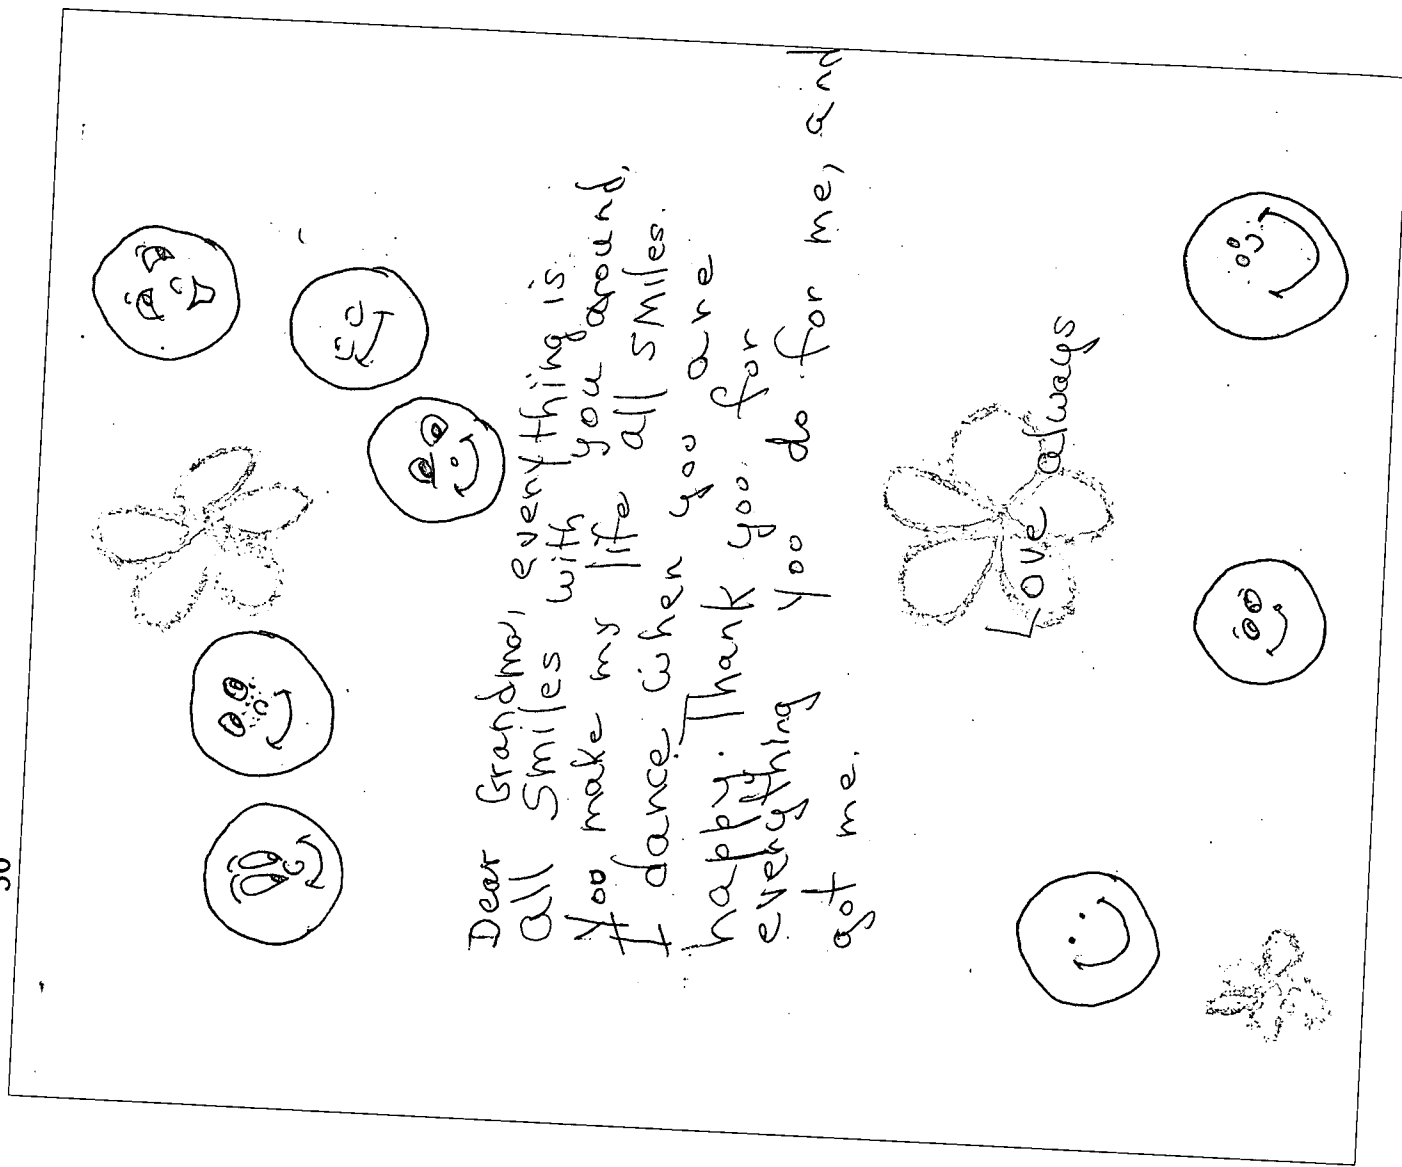 Dear Grandma, everything is
all Smiles with you around.
You make my life all smiles.
I dance when you are
happy. Thank you for
everything you do for me, and
got me.
Love always